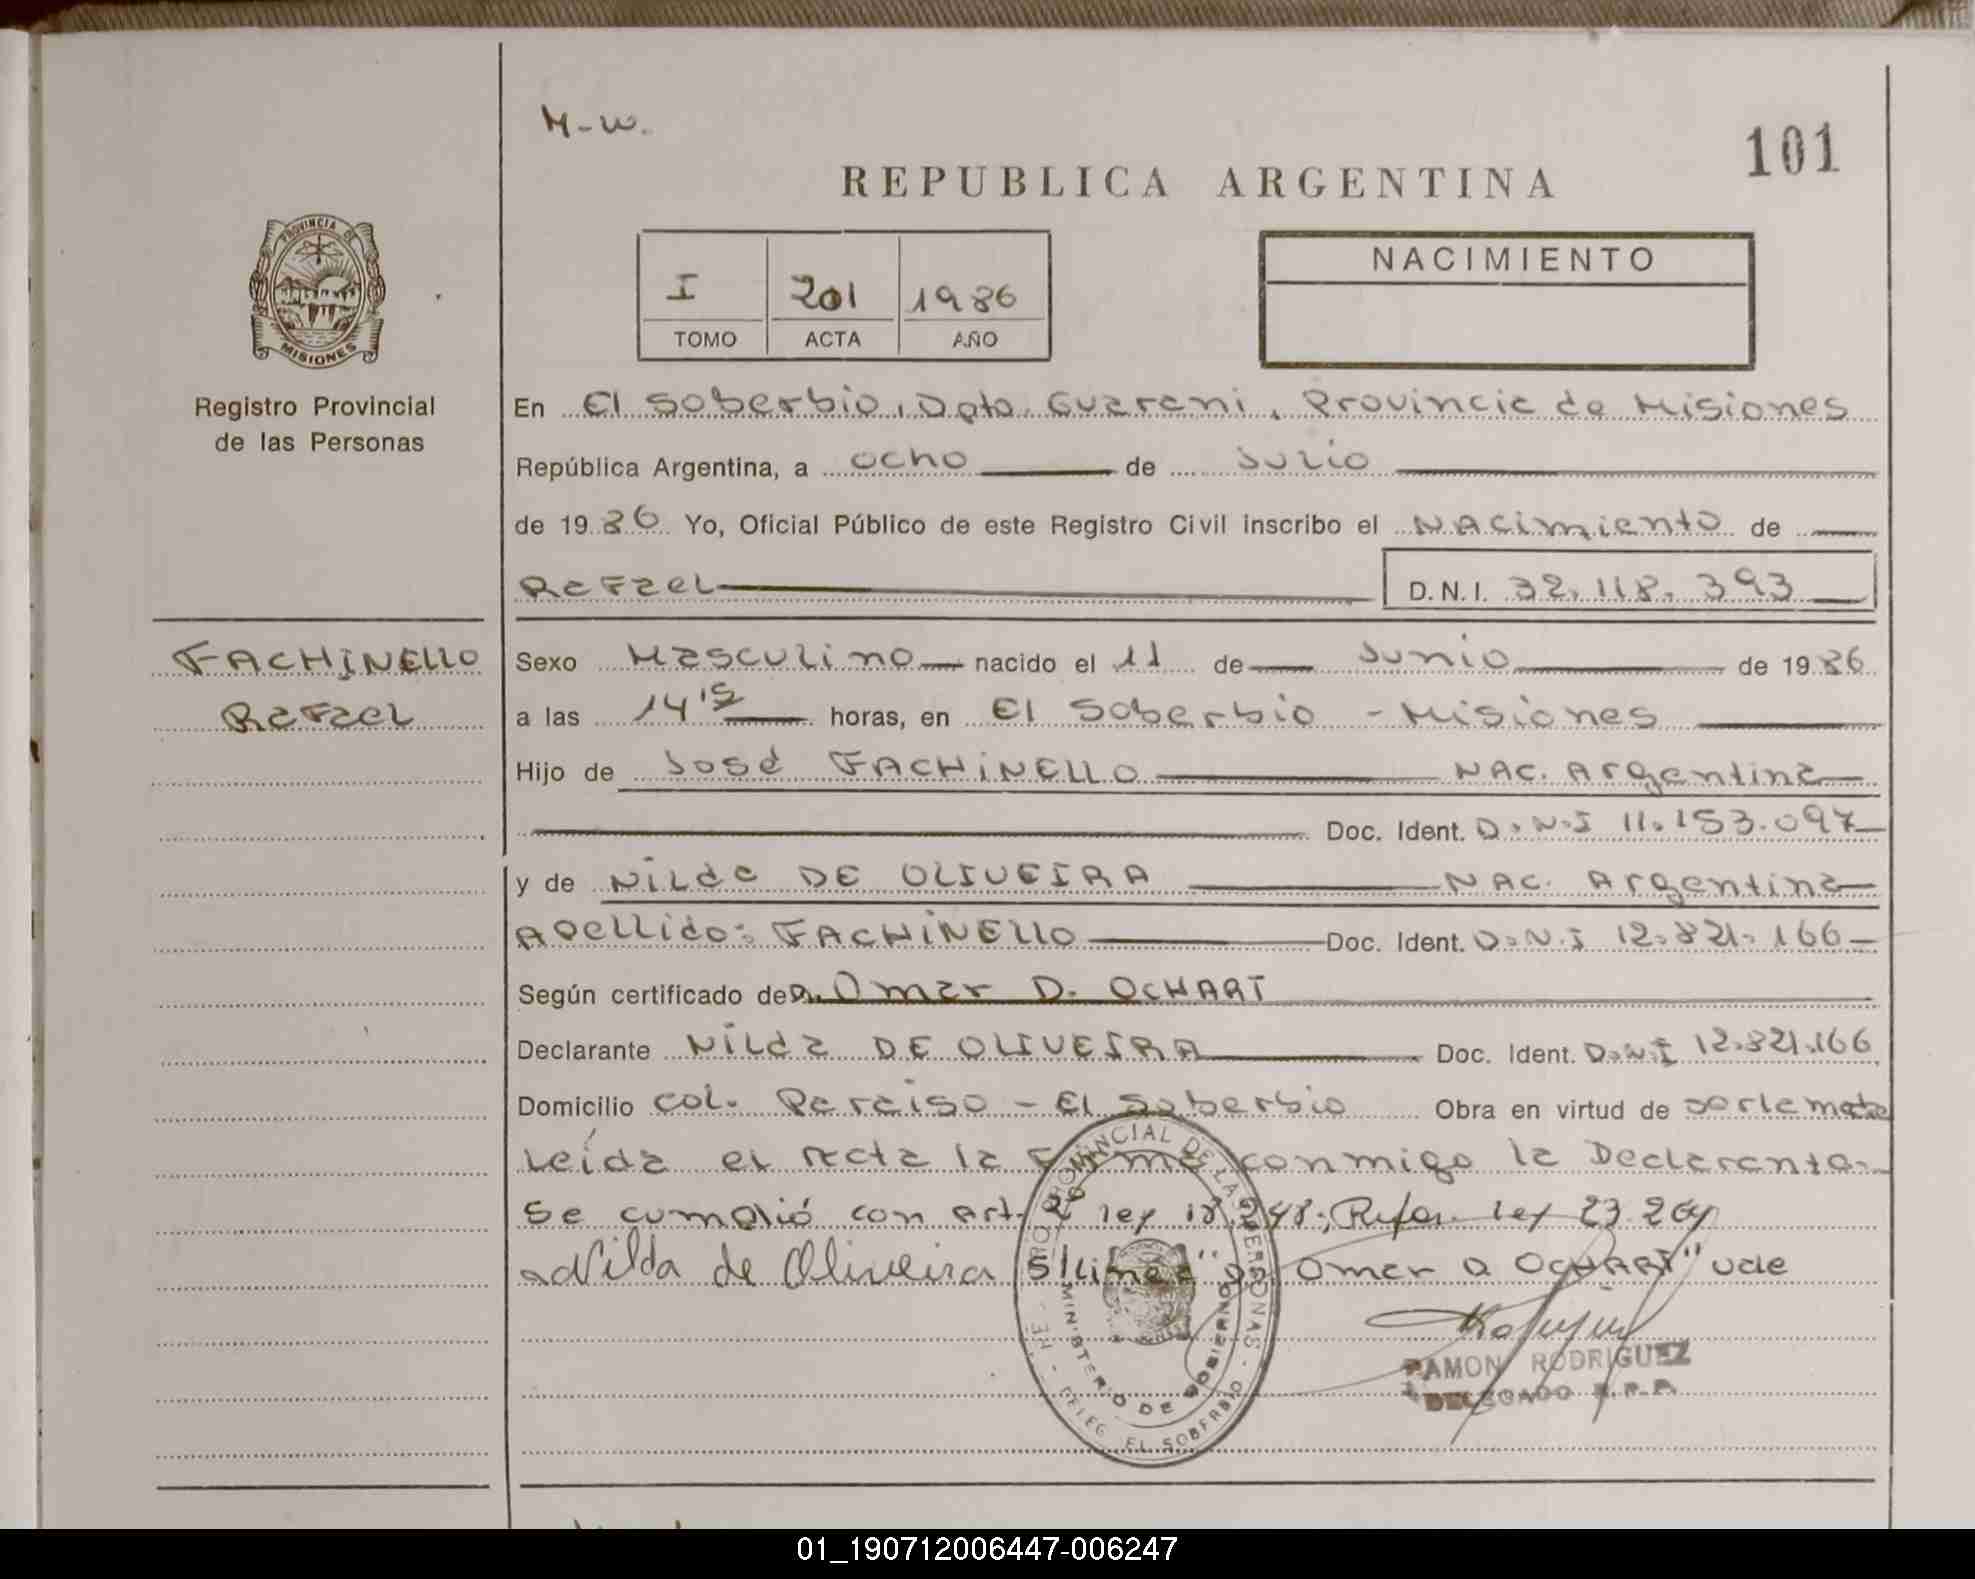 M-W.
101
REPUBLICA ARGENTINA
PROVINCIA DE
MISIONES
NACIMIENTO
I 201 1986
TOMO ACTA AÑO
Registro Provincial
de las Personas
En El Soberbio, Dpto. Guarani, Provincia de Misiones
República Argentina, a ocho de Julio
de 1986 Yo, Oficial Público de este Registro Civil inscribo el Nacimiento de
Rafael D.N.I. 32.118.393
FACHINELLO
Rafael
Sexo Masculino nacido el 11 de Junio de 1986
a las 14'15 horas, en El Soberbio - Misiones
Hijo de José FACHINELLO NAC. Argentina
Doc. Ident. D.N.I 11.153.097
y de Nilda DE OLIVEIRA NAC. Argentina
Apellido: FACHINELLO Doc. Ident. D.N.I 12.821.166
Según certificado de Omar D. OCHART
Declarante Nilda DE OLIVEIRA Doc. Ident. D.N.I 12.821.166
Domicilio Col. Paraiso - El Soberbio Obra en virtud de
Leída el acta la firma conmigo la Declarante.
Se cumplió con art. 2º ley 18.248; Refor. ley 23.264
Nilda de Oliveira S/Linea "Dr Omar D OCHART" vale
PROVINCIAL DE LAS PERSONAS
MINISTERIO DE GOBIERNO
DELEG. EL SOBERBIO
RAMON RODRIGUEZ
DELEGADO R.P.P.
01_190712006447-006247